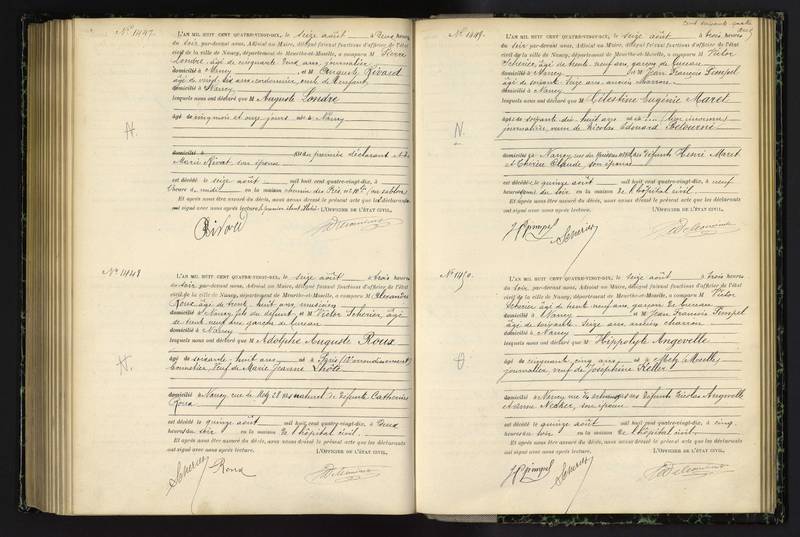 N° 1447.
L'AN MIL HUIT CENT QUATRE-VINGT-DIX, le seize août à deux heures
du soir, par-devant nous, Adjoint au Maire, délégué faisant fonctions d'officier de l'état
civil de la ville de Nancy, département de Meurthe-et-Moselle, a comparu M Pierre
Londre, âgé de cinquante deux ans, journalier
domicilié à Nancy et M Auguste
âgé de vingt ans cordonnier, oncle de l'enfant
domicilié à Nancy
lesquels nous ont déclaré que M Auguste Londre
âgé de cinq mois et onze jours né à Nancy
domicilié à fils du premier déclarant et de
Marie Nivat, son épouse
est décédé le seize août mil huit cent quatre-vingt-dix, à
heure de midi en la maison chemin des Prés, n°
Et après nous être assuré du décès, nous avons dressé le présent acte que les déclarants
ont signé avec nous après lecture, le premier étant L'OFFICIER DE L'ÉTAT CIVIL,
N° 1448
L'AN MIL HUIT CENT QUATRE-VINGT-DIX, le seize août à trois heures
du soir, par-devant nous, Adjoint au Maire, délégué faisant fonctions d'officier de l'état
civil de la ville de Nancy, département de Meurthe-et-Moselle, a comparu M Alexandre
Roux, âgé de trente huit ans, musicien
domicilié à Nancy, fils du défunt, et M Victor Scherier, âgé
de trente neuf ans garçon de bureau
domicilié à Nancy
lesquels nous ont déclaré que M Adolphe Auguste Roux
âgé de soixante huit ans né à Paris
veuf de Marie Jeanne Lhôte
domicilié à Nancy rue de Metz 28 fils naturel de défunte Catherine
Roux
est décédé le quinze août mil huit cent quatre-vingt-dix, à deux
heures du soir en la maison de l'hôpital civil.
Et après nous être assuré du décès, nous avons dressé le présent acte que les déclarants
ont signé avec nous après lecture. L'OFFICIER DE L'ÉTAT CIVIL,
Roux
cent soixante quatre
N° 1449.
L'AN MIL HUIT CENT QUATRE-VINGT-DIX, le seize août à trois heures
du soir par-devant nous, Adjoint au Maire, délégué faisant fonctions d'officier de l'état
civil de la ville de Nancy, département de Meurthe-et-Moselle, a comparu M Victor
Scherier, âgé de trente neuf ans, garçon de bureau
domicilié à Nancy et M Jean François Pempel
âgé de soixante seize ans ancien
domicilié à Nancy
lesquels nous ont déclaré que M Célestine Eugénie Maret
âgée de soixante dix huit ans née à
journalière, veuve de Nicolas Edouard
domiciliée à Nancy, rue fille des défunts Henri Maret
et Claude, son épouse
est décédée le quinze août mil huit cent quatre-vingt-dix, à neuf
heures du soir en la maison de l'hôpital civil
Et après nous être assuré du décès, nous avons dressé le présent acte que les déclarants
ont signé avec nous après lecture. L'OFFICIER DE L'ÉTAT CIVIL,
N° 1450.
L'AN MIL HUIT CENT QUATRE-VINGT-DIX, le seize août à trois heures
du soir, par-devant nous, Adjoint au Maire, délégué faisant fonctions d'officier de l'état
civil de la ville de Nancy, département de Meurthe-et-Moselle, a comparu M Victor
Scherier âgé de trente neuf ans, garçon de bureau
domicilié à Nancy et M Jean François Pempel
âgé de soixante seize ans, ancien charron
domicilié à Nancy
lesquels nous ont déclaré que M Hippolyte Angevelle
âgé de cinquante cinq ans né à Metz (Moselle)
journalier, veuf de Joséphine Keller
domicilié à Nancy rue fils des défunts Nicolas Angevelle
et son épouse
est décédé le quinze août mil huit cent quatre-vingt-dix, à cinq
heures du soir en la maison de l'hôpital civil
Et après nous être assuré du décès, nous avons dressé le présent acte que les déclarants
ont signé avec nous après lecture. L'OFFICIER DE L'ÉTAT CIVIL,